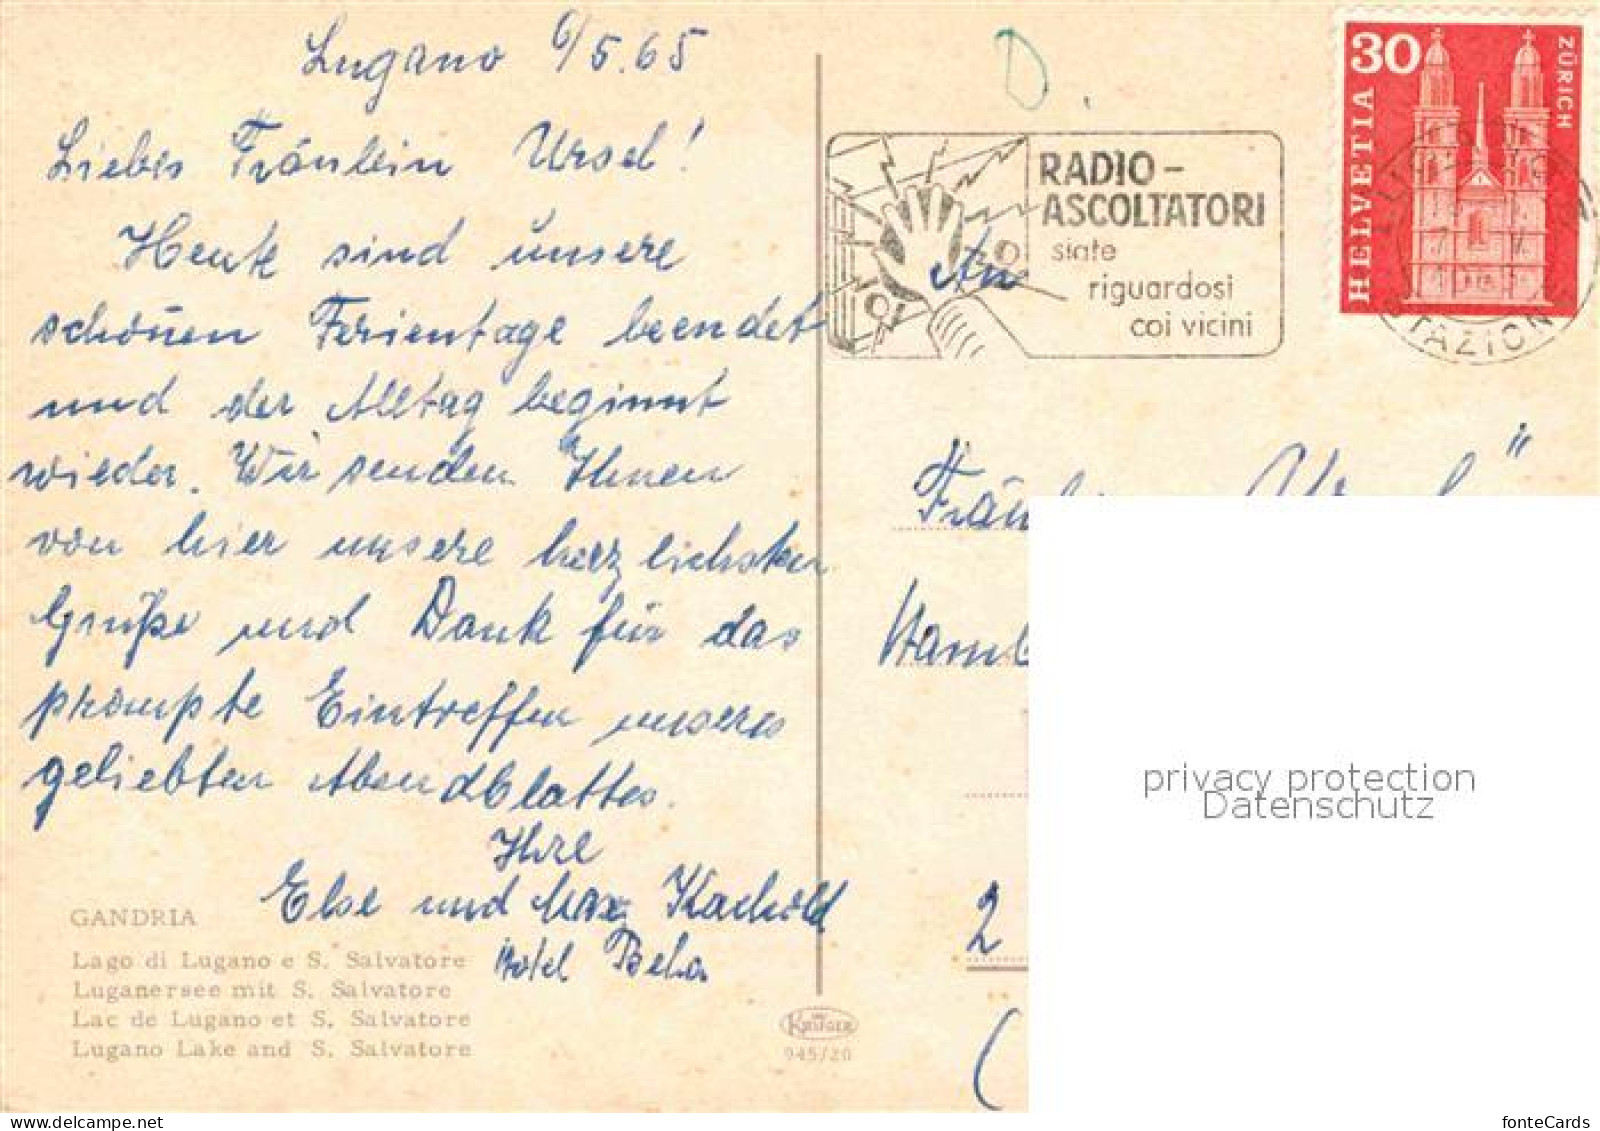 Lugano 6/5.65
Liebes Fräulein Ursel!
Heute sind unsere
schönen Ferientage beendet
und der Alltag beginnt
wieder. Wir senden Ihnen
von hier unsere herzlichsten
Grüße und Dank für das
prompte Eintreffen unseres
geliebten Abendblattes.
Ihre
Else und Max
Hotel Beha
GANDRIA
Lago di Lugano e S. Salvatore
Luganersee mit S. Salvatore
Lac de Lugano et S. Salvatore
Lugano Lake and S. Salvatore
KRÜGER
945/20
D.
RADIO-
ASCOLTATORI
siate
riguardosi
coi vicini
30
HELVETIA
ZÜRICH
An
Fräu
Hamb
2
(
privacy protection
Datenschutz
fonteCards